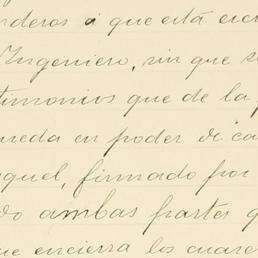 nderos á que está escr
Ingeniero, sin que s
timonios que de la p
ueda en poder de ca
quel, firmado por
do ambas partes q
ue encierra los cuare